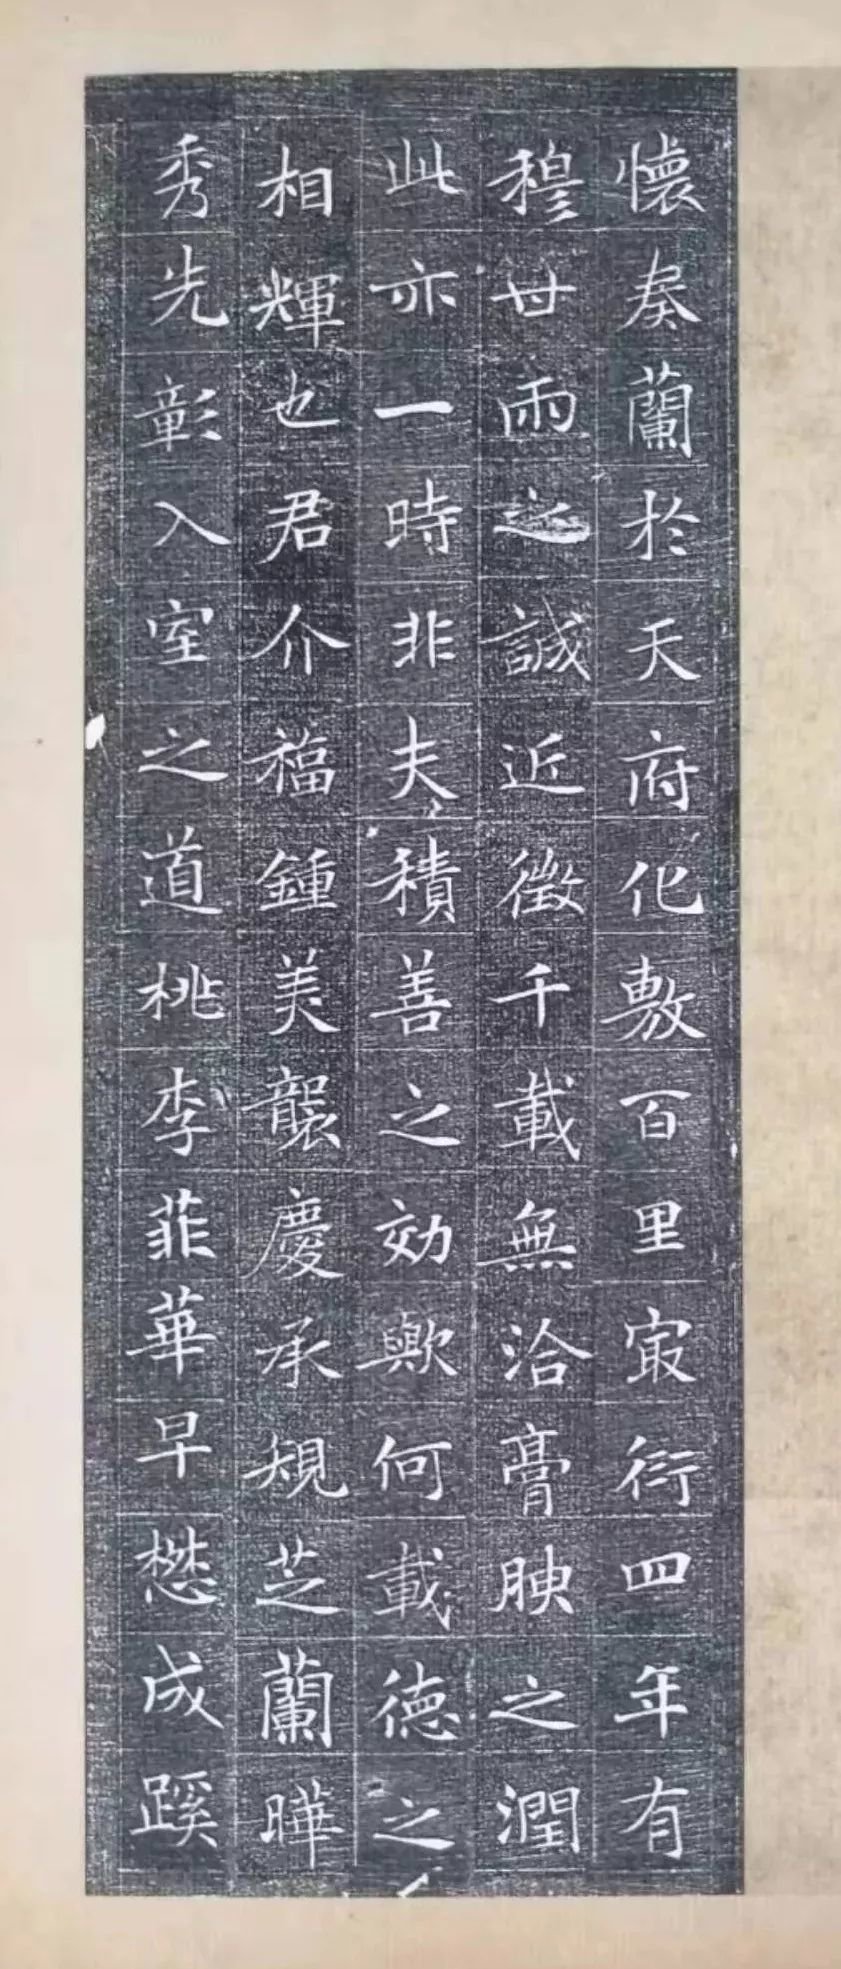 懐奏蘭於天府化敷百里冣衍四年有
穆世雨之誠近徵千載無洽膏腴之潤
此亦一時非夫積善之効歟何載德之
相輝也君介福鍾美襲慶承規芝蘭曄
秀先彰入室之道桃李菲華早懋成蹊